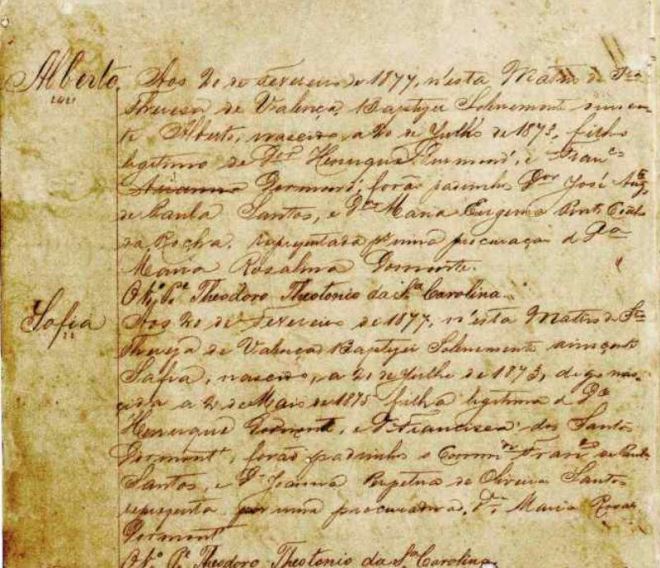 Alberto Aos 20 de Fevereiro de 1877, n'esta Matriz de Sta
Thereza de Valença, Baptizei Solenemente
Alberto, nascido, a 20 de Julho de 1873, filho
legitimo de Henrique e
Dermont, forão padrinhos Dor José Aug.
de Paula Santos, e Da Maria Eugenia
da Rocha, representada pr uma procuração d Da
Maria Rosalina
O Theodoro Theotonio da Sta Carolina
Sofia Aos 20 de Fevereiro de 1877, n'esta Matriz de Sta
Thereza de Valença Baptizei Solenemente a innocente
Safia, nascido, a 21 de Julho de 1873, digo nas
cida a 2 de Maio de 1875 filha legitima d
Henrique Dermont, e D. Francisca dos Santos
Dermont, forão padrinhos o Comm.dr Franco de Paula
Santos, e Da Joanna Perpetua de Oliveira Santos
representa por uma procuradora, Da Maria Rosa
Dermont
O Theodoro Theotonio da Sta Carolina